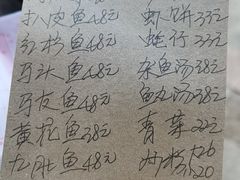 扒皮鱼48元 虾饼33元
红杉鱼48元 蚝仔33元
马头鱼48元 杂鱼汤38元
马友鱼48元 鱼丸汤38元
黄花鱼38元 青菜22元
九肚鱼48元